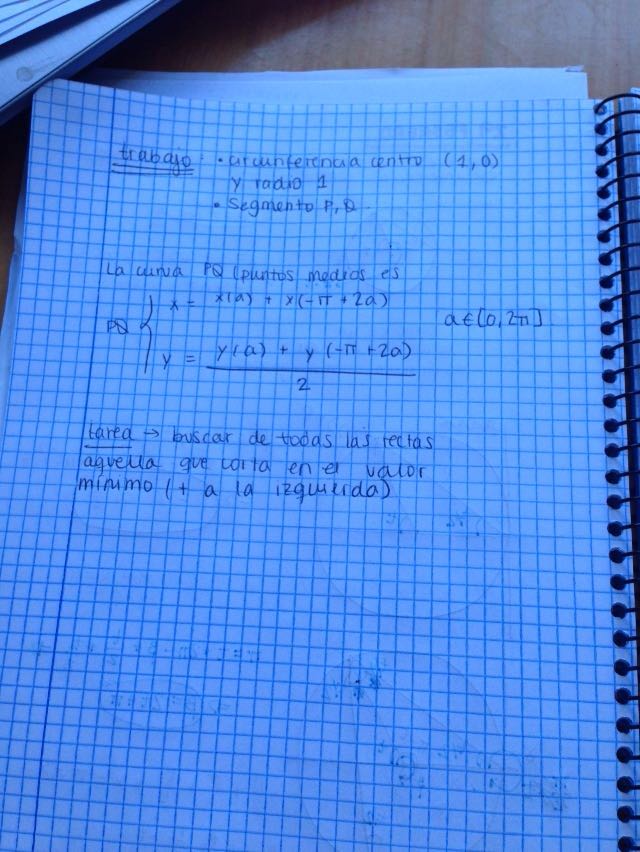 trabajo : • circunferencia centro (1,0)
y radio 1
• Segmento P,Q.
La curva PQ (puntos medios es
x = x(a) + x(-π + 2a)
PQ { a ∈ [0, 2π]
y = y(a) + y(-π + 2a)
2
tarea → buscar de todas las rectas
aquella que corta en el valor
mínimo (+ a la izquierda)